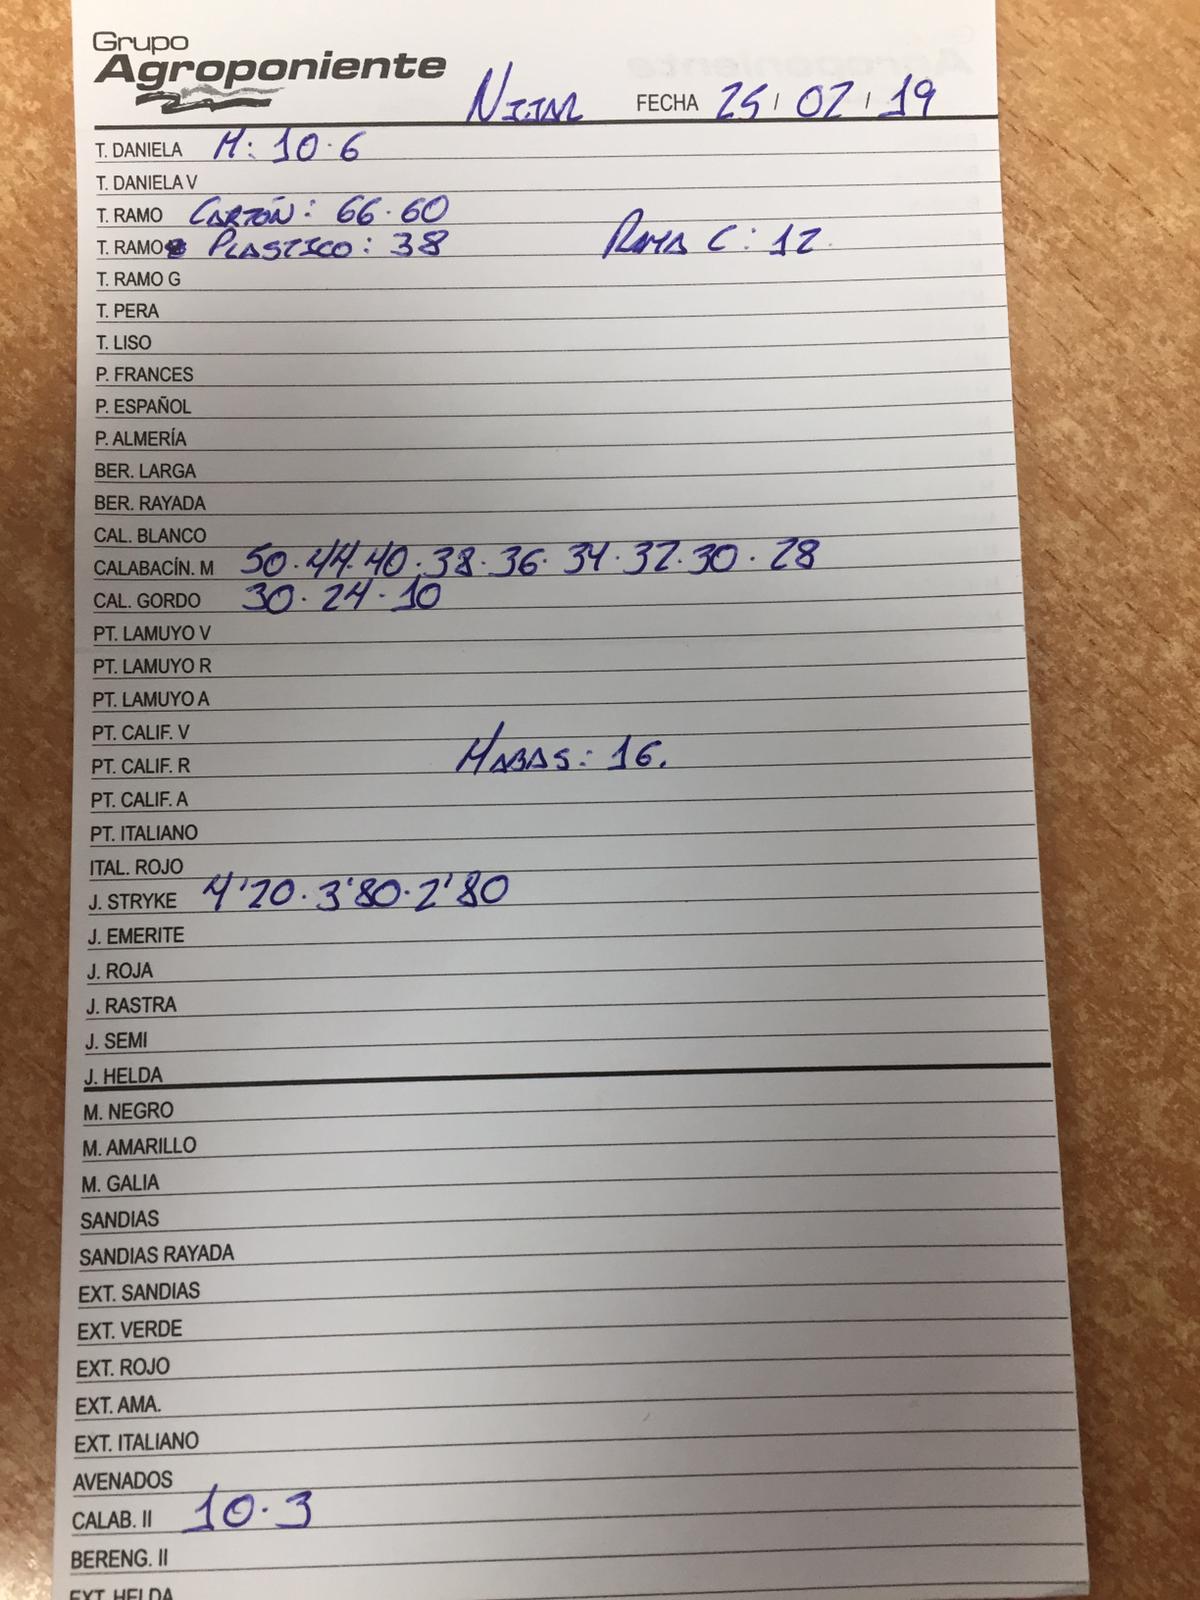 Grupo
Agroponiente
NIJAR FECHA 25 / 02 / 19
T. DANIELA M: 10·6
T. DANIELA V
T. RAMO CARTÓN: 66·60
T. RAMO PLASTICO: 38 RAMA C: 12
T. RAMO G
T. PERA
T. LISO
P. FRANCES
P. ESPAÑOL
P. ALMERÍA
BER. LARGA
BER. RAYADA
CAL. BLANCO
CALABACÍN. M 50·44·40·38·36·34·32·30·28
CAL. GORDO 30·24·10
PT. LAMUYO V
PT. LAMUYO R
PT. LAMUYO A
PT. CALIF. V
PT. CALIF. R HABAS: 16.
PT. CALIF. A
PT. ITALIANO
ITAL. ROJO
J. STRYKE 4'20·3'80·2'80
J. EMERITE
J. ROJA
J. RASTRA
J. SEMI
J. HELDA
M. NEGRO
M. AMARILLO
M. GALIA
SANDIAS
SANDIAS RAYADA
EXT. SANDIAS
EXT. VERDE
EXT. ROJO
EXT. AMA.
EXT. ITALIANO
AVENADOS
CALAB. II 10·3
BERENG. II
EXT. HELDA